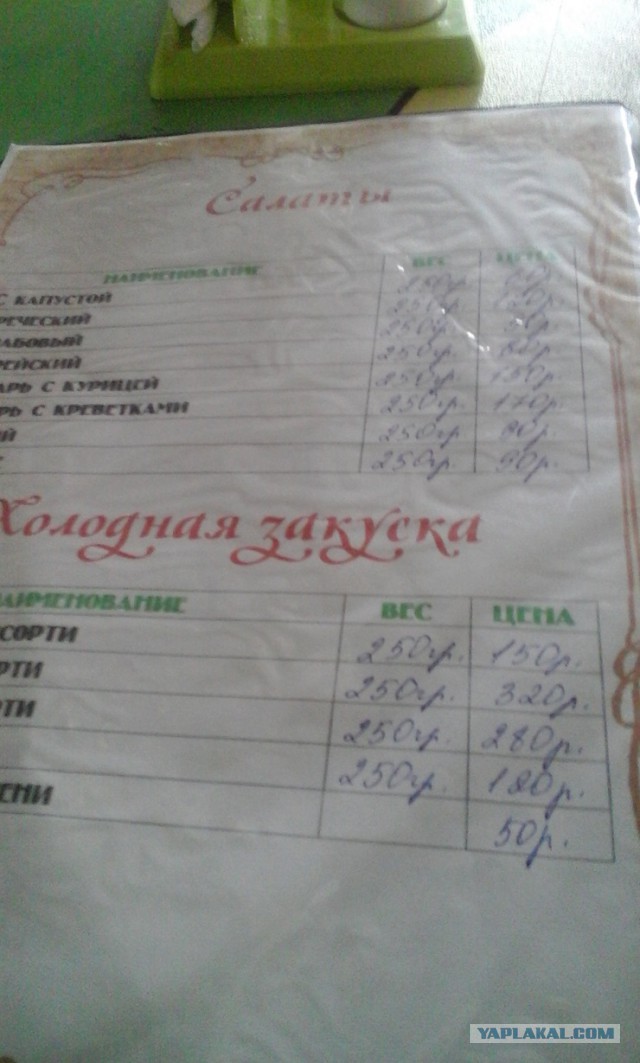 Салаты
НАИМЕНОВАНИЕ ВЕС ЦЕНА
С КАПУСТОЙ 150гр.
РЕЧЕСКИЙ 250гр.
АБОВЫЙ 250гр.
РЕЙСКИЙ 250гр.
АРЬ С КУРИЦЕЙ 250гр. 150р.
РЬ С КРЕВЕТКАМИ 250гр. 170р.
ИЙ 250гр.
250гр. 90р.
Холодная закуска
НАИМЕНОВАНИЕ ВЕС ЦЕНА
СОРТИ 250гр. 150р.
РТИ 250гр. 320р.
ТИ 250гр. 280р.
250гр.
ЕНИ 50р.
YAPLAKAL.COM